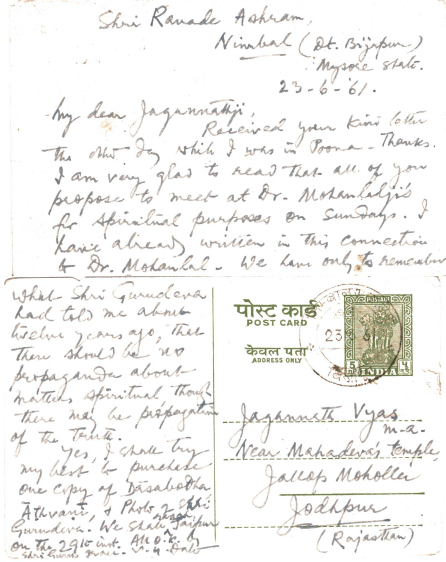 Shri Ranade Ashram,
Nimbal (Dt. Bijapur)
Mysore State.
23-6-'61.
My dear Jagannathji,
Received your kind letter
the other day while I was in Poona - Thanks.
I am very glad to read that all of you
propose to meet at Dr. Mohanlalji's
for spiritual purposes on Sundays. I
have already written in this connection
to Dr. Mohanlal. We have only to remember
what Shri Gurudeva
had told me about
twelve years ago, that
there should be no
propaganda about
matters spiritual, though
there may be propagation
of the Truth.
Yes, I shall try
my best to purchase
one copy of Dasabodha
Athvani, & Photo of Shri
Gurudeva. We shall reach Jaipur
on the 29th inst. All O.K. by
Shri Gurudeva's
पोस्ट कार्ड
POST CARD
केवल पता
ADDRESS ONLY
POSTAGE
५ 5
INDIA
23
Jagannath Vyas
M.A.
Near Mahadeva's temple,
Jallop Mohalla
Jodhpur
(Rajasthan)